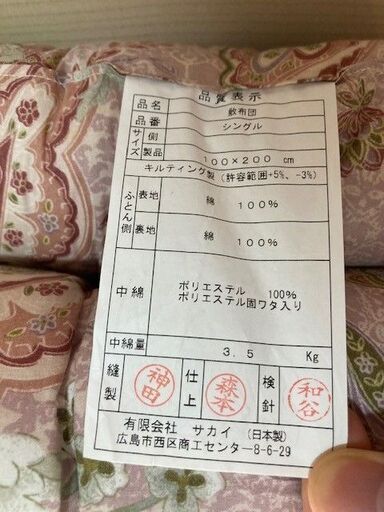 品質表示
品名 敷布団
品番 シングル
サイズ 側
製品 100×200 cm
キルティング製 (許容範囲+5%、-3%)
ふとん側 表地 綿 100%
裏地 綿 100%
中綿 ポリエステル 100%
ポリエステル固ワタ入り
中綿量 3.5 Kg
縫製 神田 仕上 森本 検針 和谷
有限会社 サカイ (日本製)
広島市西区商工センター8-6-29